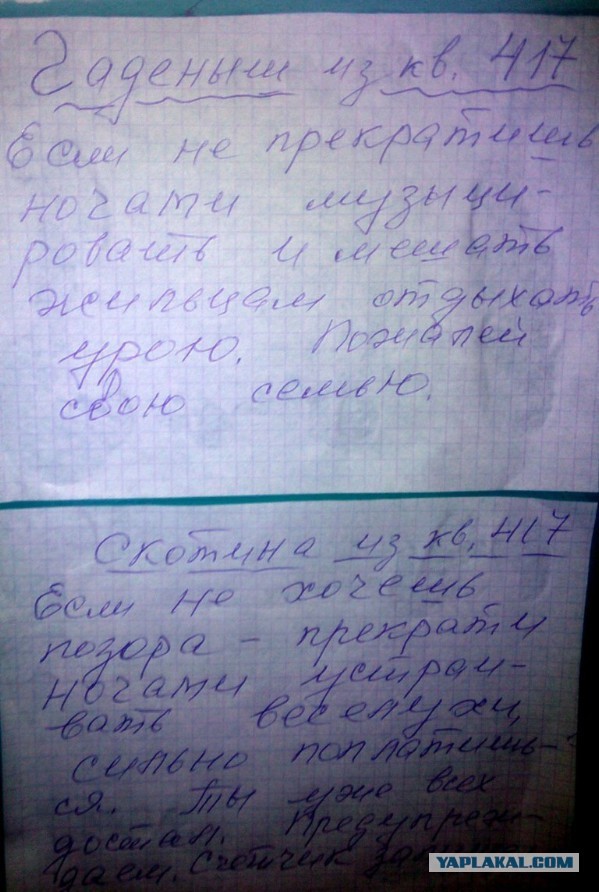 Гаденыш из кв. 417
Если не прекратишь
ночами музыци-
ровать и мешать
жильцам отдыхать
урою. Пожалей
свою семью.
Скотина из кв. 417
Если не хочешь
позора - прекрати
ночами устраи-
вать веселухи,
сильно поплатишь-
ся. Ты уже всех
достал. Предупреж-
даем. Счётчик
YAPLAKAL.COM